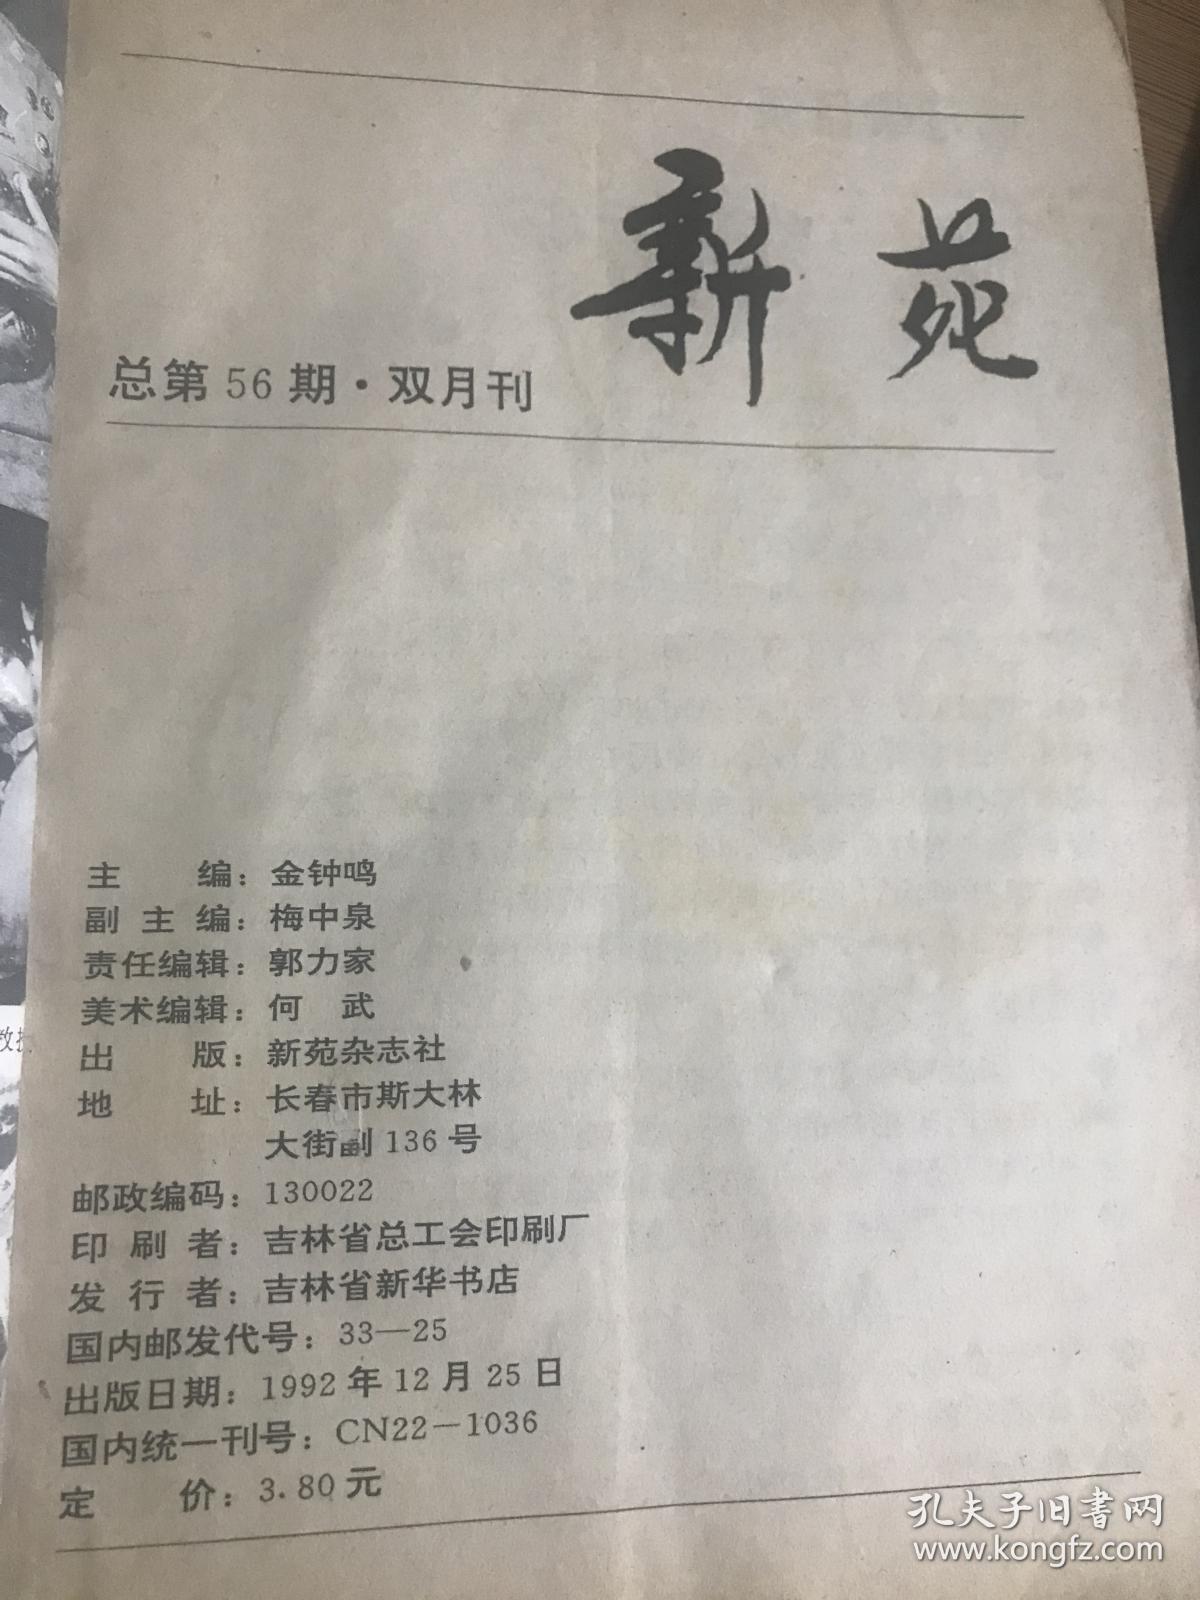 新苑
总第 56 期·双月刊
主 编：金钟鸣
副 主 编：梅中泉
责任编辑：郭力家
美术编辑：何 武
出 版：新苑杂志社
地 址：长春市斯大林
大街副 136 号
邮政编码：130022
印 刷 者：吉林省总工会印刷厂
发 行 者：吉林省新华书店
国内邮发代号：33—25
出版日期：1992 年 12 月 25 日
国内统一刊号：CN22－1036
定 价：3.80 元
孔夫子旧书网
www.kongfz.com